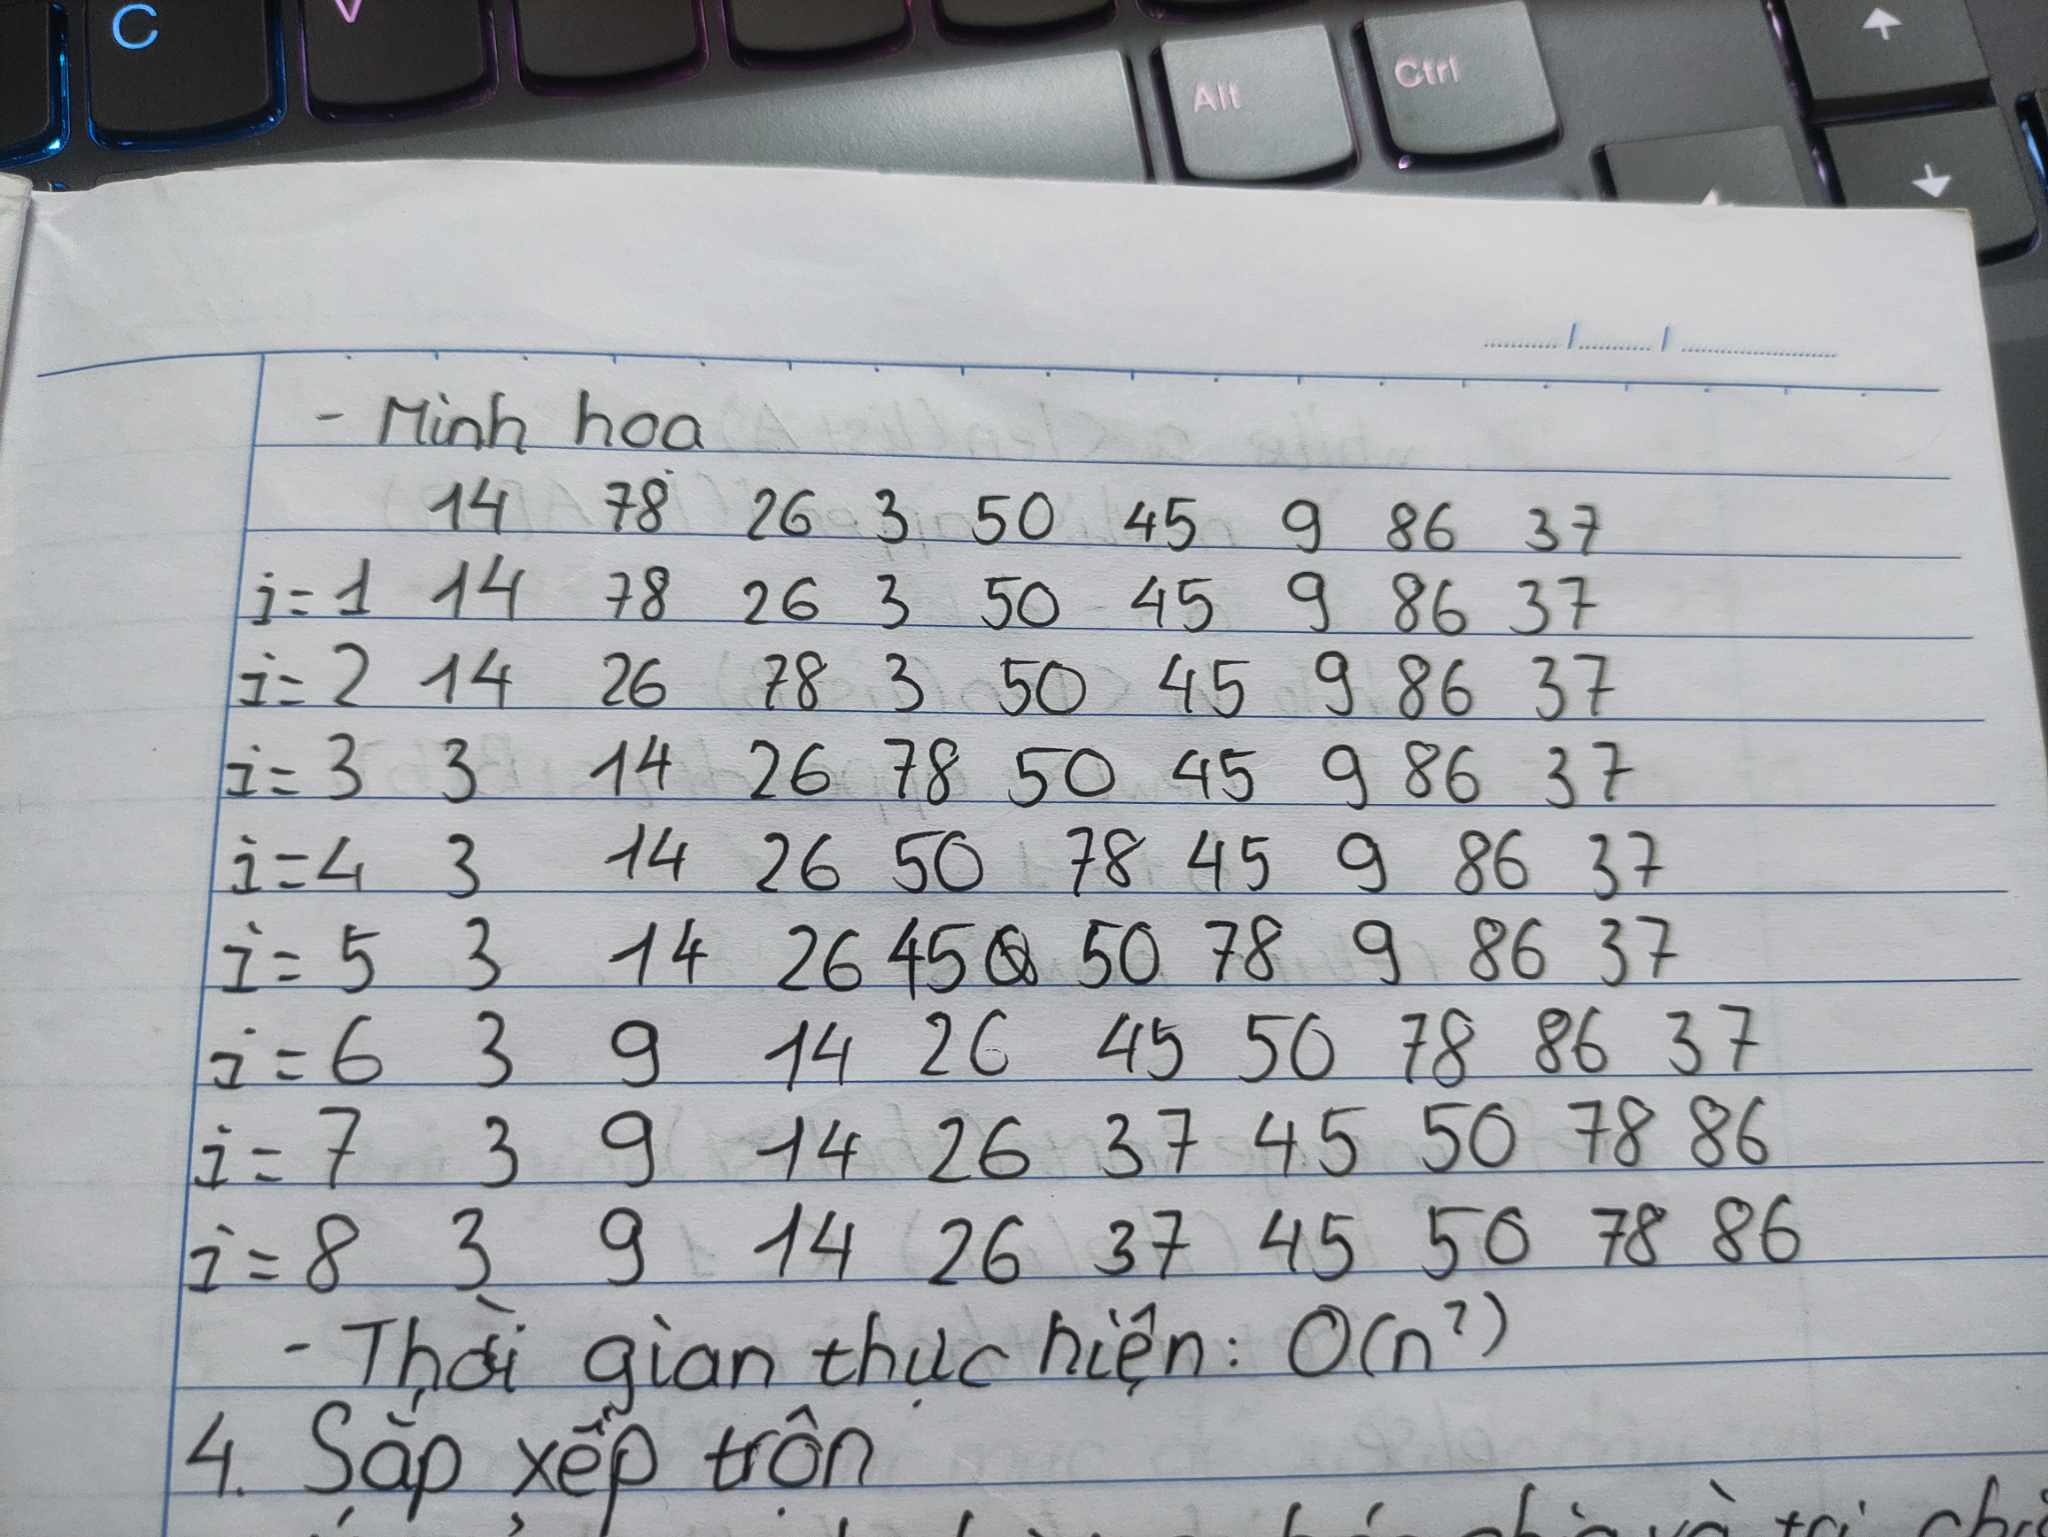 C V
Alt Ctrl
- Minh hoa
14 78 26 3 50 45 9 86 37
i=1 14 78 26 3 50 45 9 86 37
i=2 14 26 78 3 50 45 9 86 37
i=3 3 14 26 78 50 45 9 86 37
i=4 3 14 26 50 78 45 9 86 37
i=5 3 14 26 45 50 78 9 86 37
i=6 3 9 14 26 45 50 78 86 37
i=7 3 9 14 26 37 45 50 78 86
i=8 3 9 14 26 37 45 50 78 86
- Thời gian thực hiện: O(n²)
4. Sắp xếp trộn